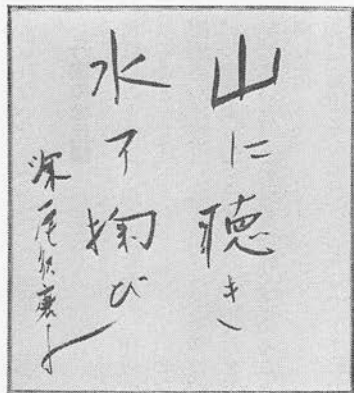 山に聴き
水了掬び
深尾須磨子